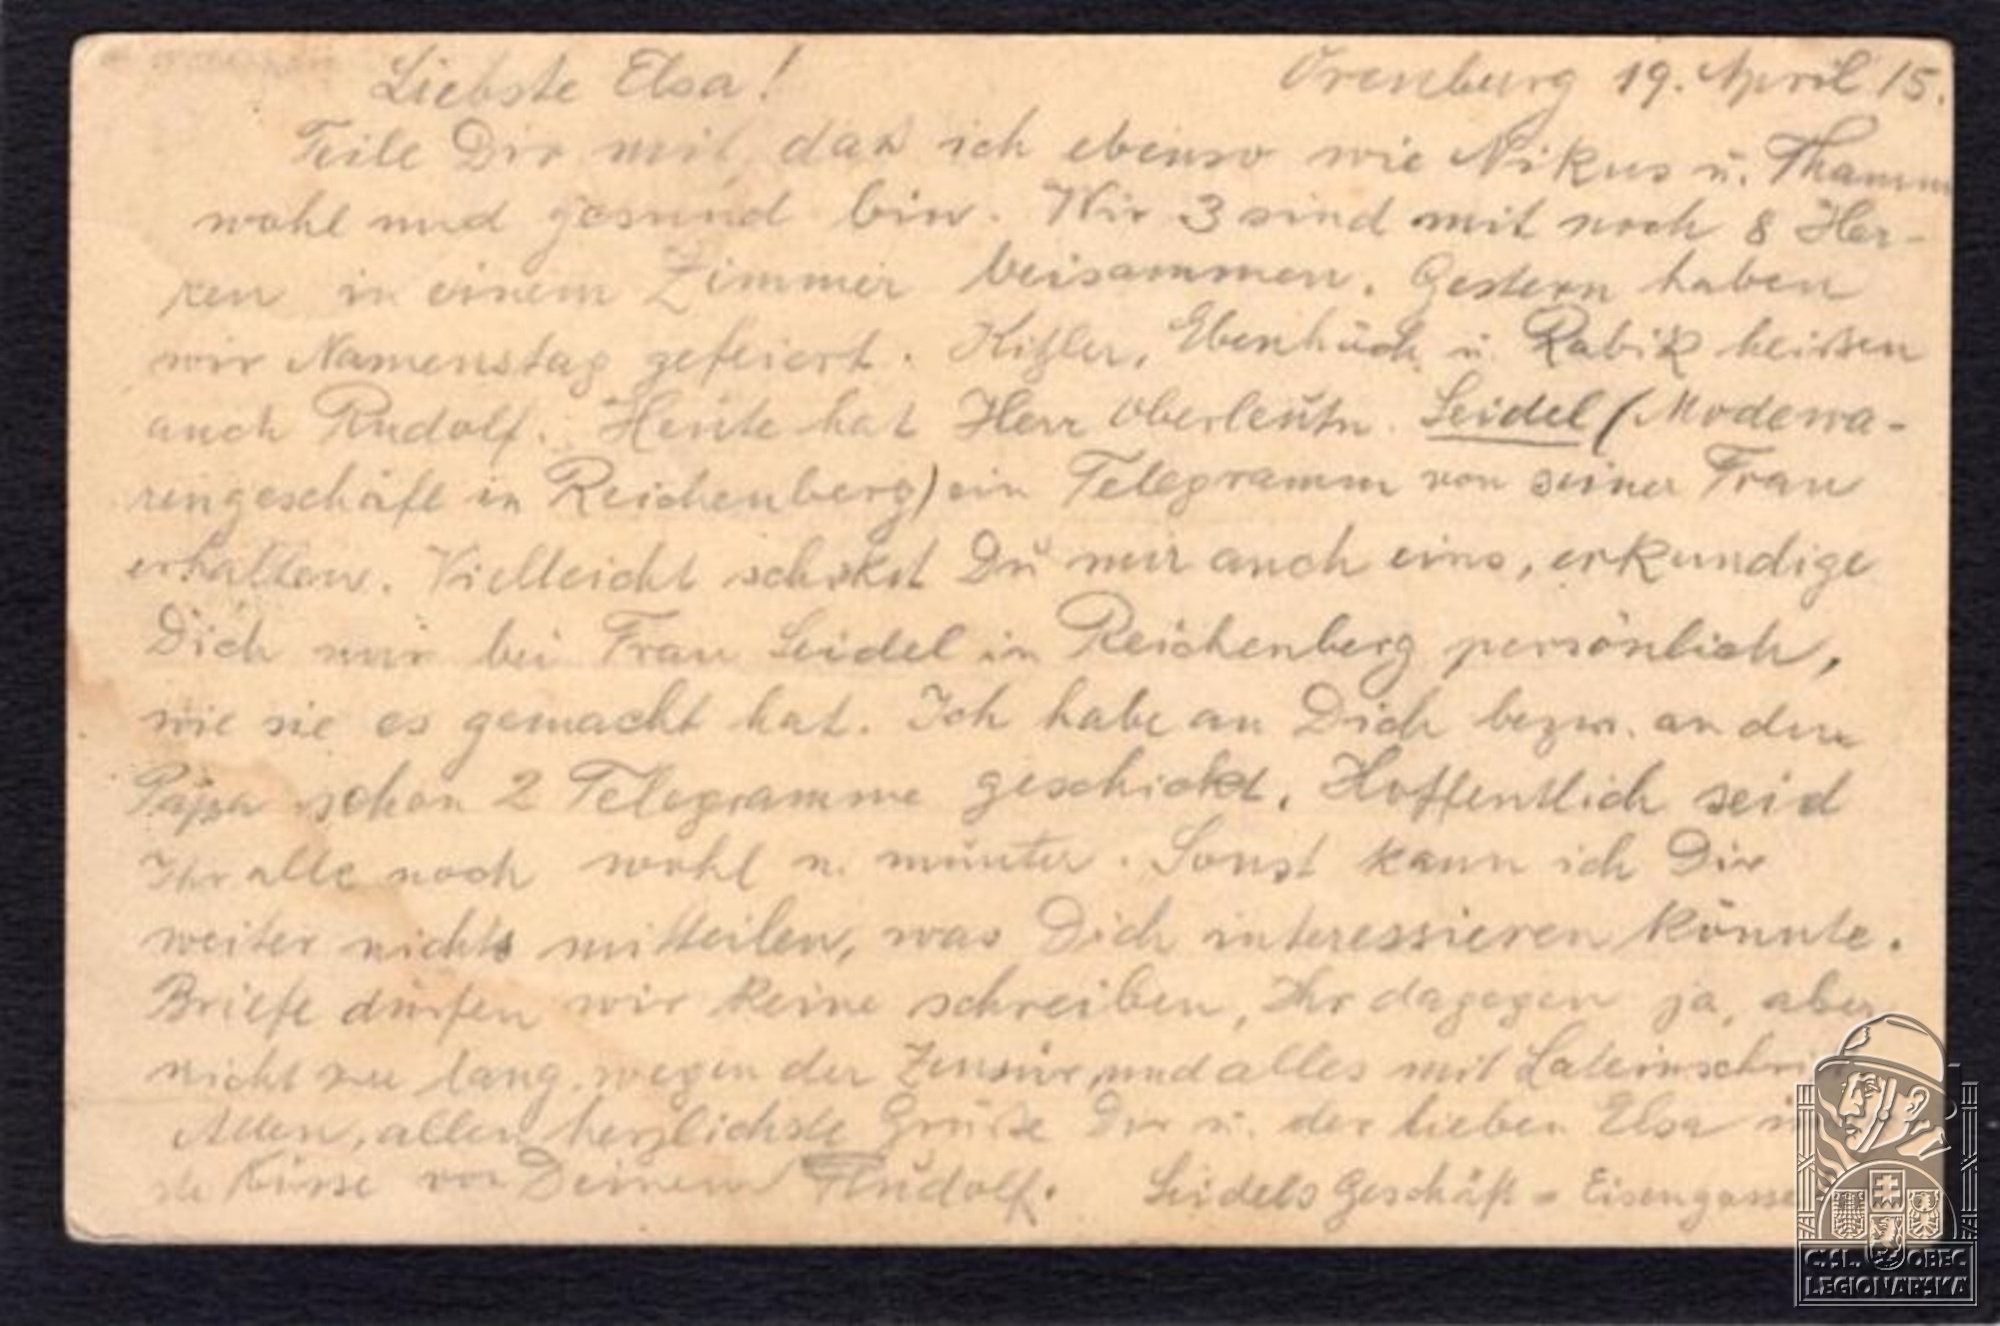 Liebste Elsa! Orenburg 19. April 15.
Teile Dir mit, daß ich ebenso wie Nikus u. Thamm
wohl und gesund bin. Wir 3 sind mit noch 8 Her-
ren in einem Zimmer beisammen. Gestern haben
wir Namenstag gefeiert. Kißler, Ebenhöch u. Rabik heissen
auch Rudolf. Heute hat Herr Oberleutn. Seidel (Modewa-
rengeschäft in Reichenberg) ein Telegramm von seiner Frau
erhalten. Vielleicht schikst Du mir auch eins, erkundige
Dich nur bei Frau Seidel in Reichenberg persönlich,
wie sie es gemacht hat. Ich habe an Dich bezw. an den
Papa schon 2 Telegramme geschickt. Hoffentlich seid
Ihr alle noch wohl u. munter. Sonst kann ich Dir
weiter nichts mitteilen, was Dich interessieren könnte.
Briefe dürfen wir keine schreiben, Ihr dagegen ja, aber
nicht zu lang, wegen der Zensur, und alles mit
Allen, allen herzlichste Grüße Dir u. der lieben Elsa
Küsse von Deinem Rudolf. Seidels Geschäft = Eisengasse
Č.SL. OBEC
LEGIONÁŘSKÁ